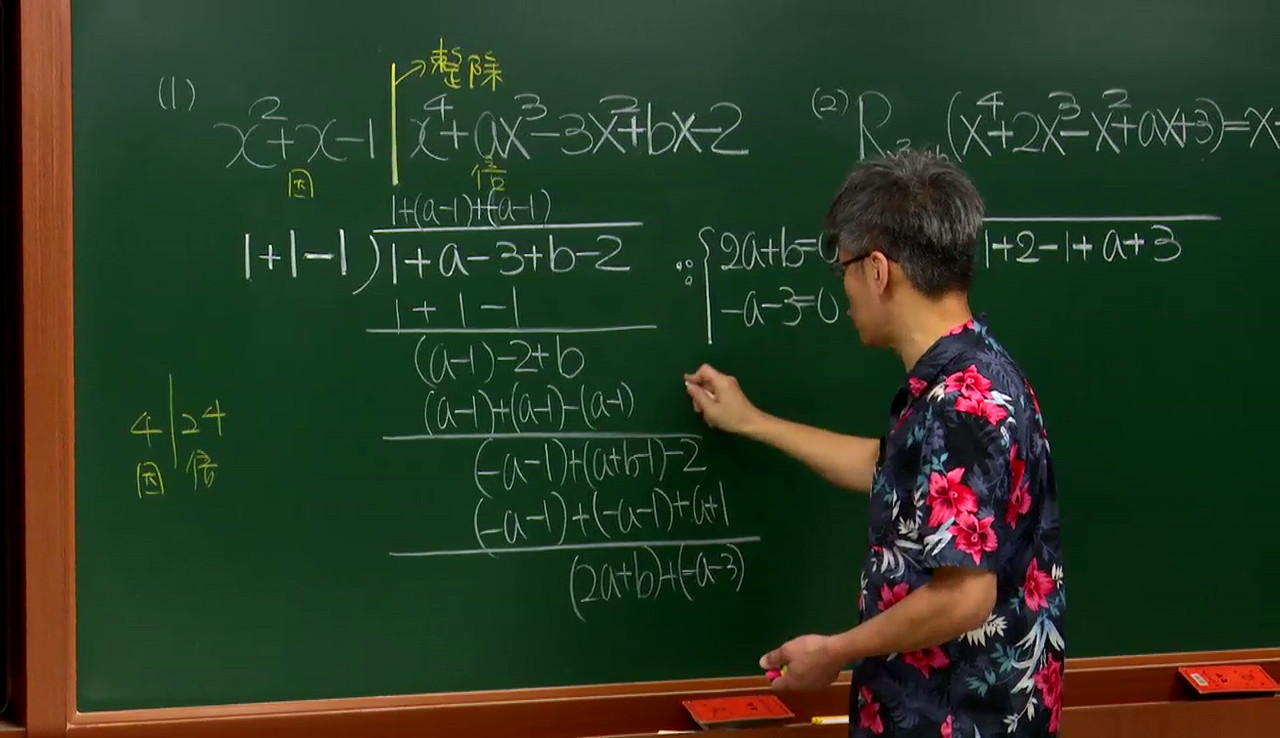 整除
(1) x²+x-1 | x⁴+ax³-3x²+bx-2
因 倍
1+(a-1)+(-a-1)
1+1-1 ) 1+a-3+b-2
1+1-1
(a-1)-2+b
(a-1)+(a-1)-(a-1)
(-a-1)+(a+b-1)-2
(-a-1)+(-a-1)+a+1
(2a+b)+(-a-3)
4 | 24
因 倍
∴ { 2a+b=0
-a-3=0
(2) R (x⁴+2x³-x²+ax+3)=x
1+2-1+a+3